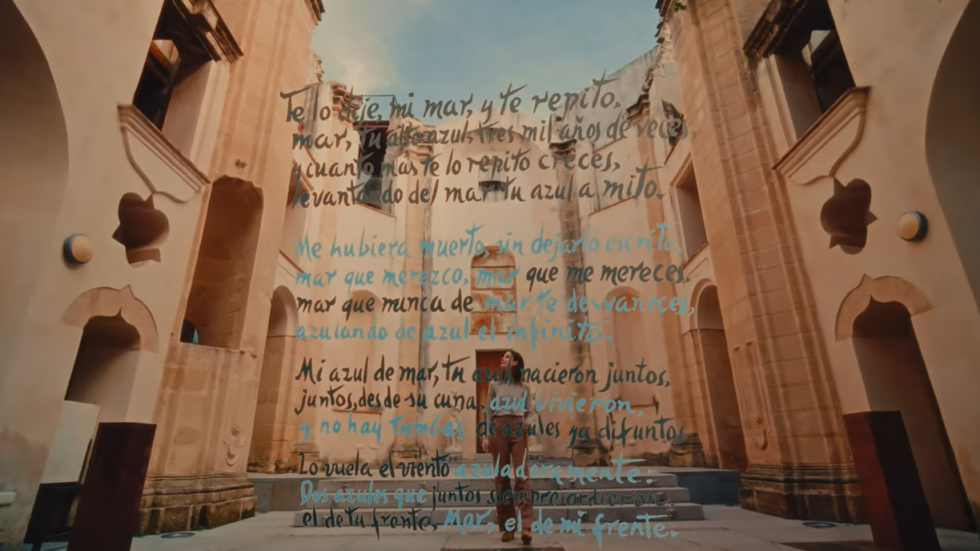 Te lo dije, mi mar, y te repito,
mar, tu alto azul, tres mil años de veces,
y cuanto más te lo repito creces,
levantando del mar tu azul a mito.
Me hubiera muerto, sin dejarlo escrito,
mar que merezco, mar que me mereces,
mar que nunca de mar te desvaneces,
azulando de azul el infinito.
Mi azul de mar, tu azul nacieron juntos,
juntos, desde su cuna, azul vivieron,
y no hay tumbas de azules ya difuntos.
Lo vuela el viento azuladoramente:
Dos azules que juntos siempre ardieron
el de tu frente, Mar, el de mi frente.